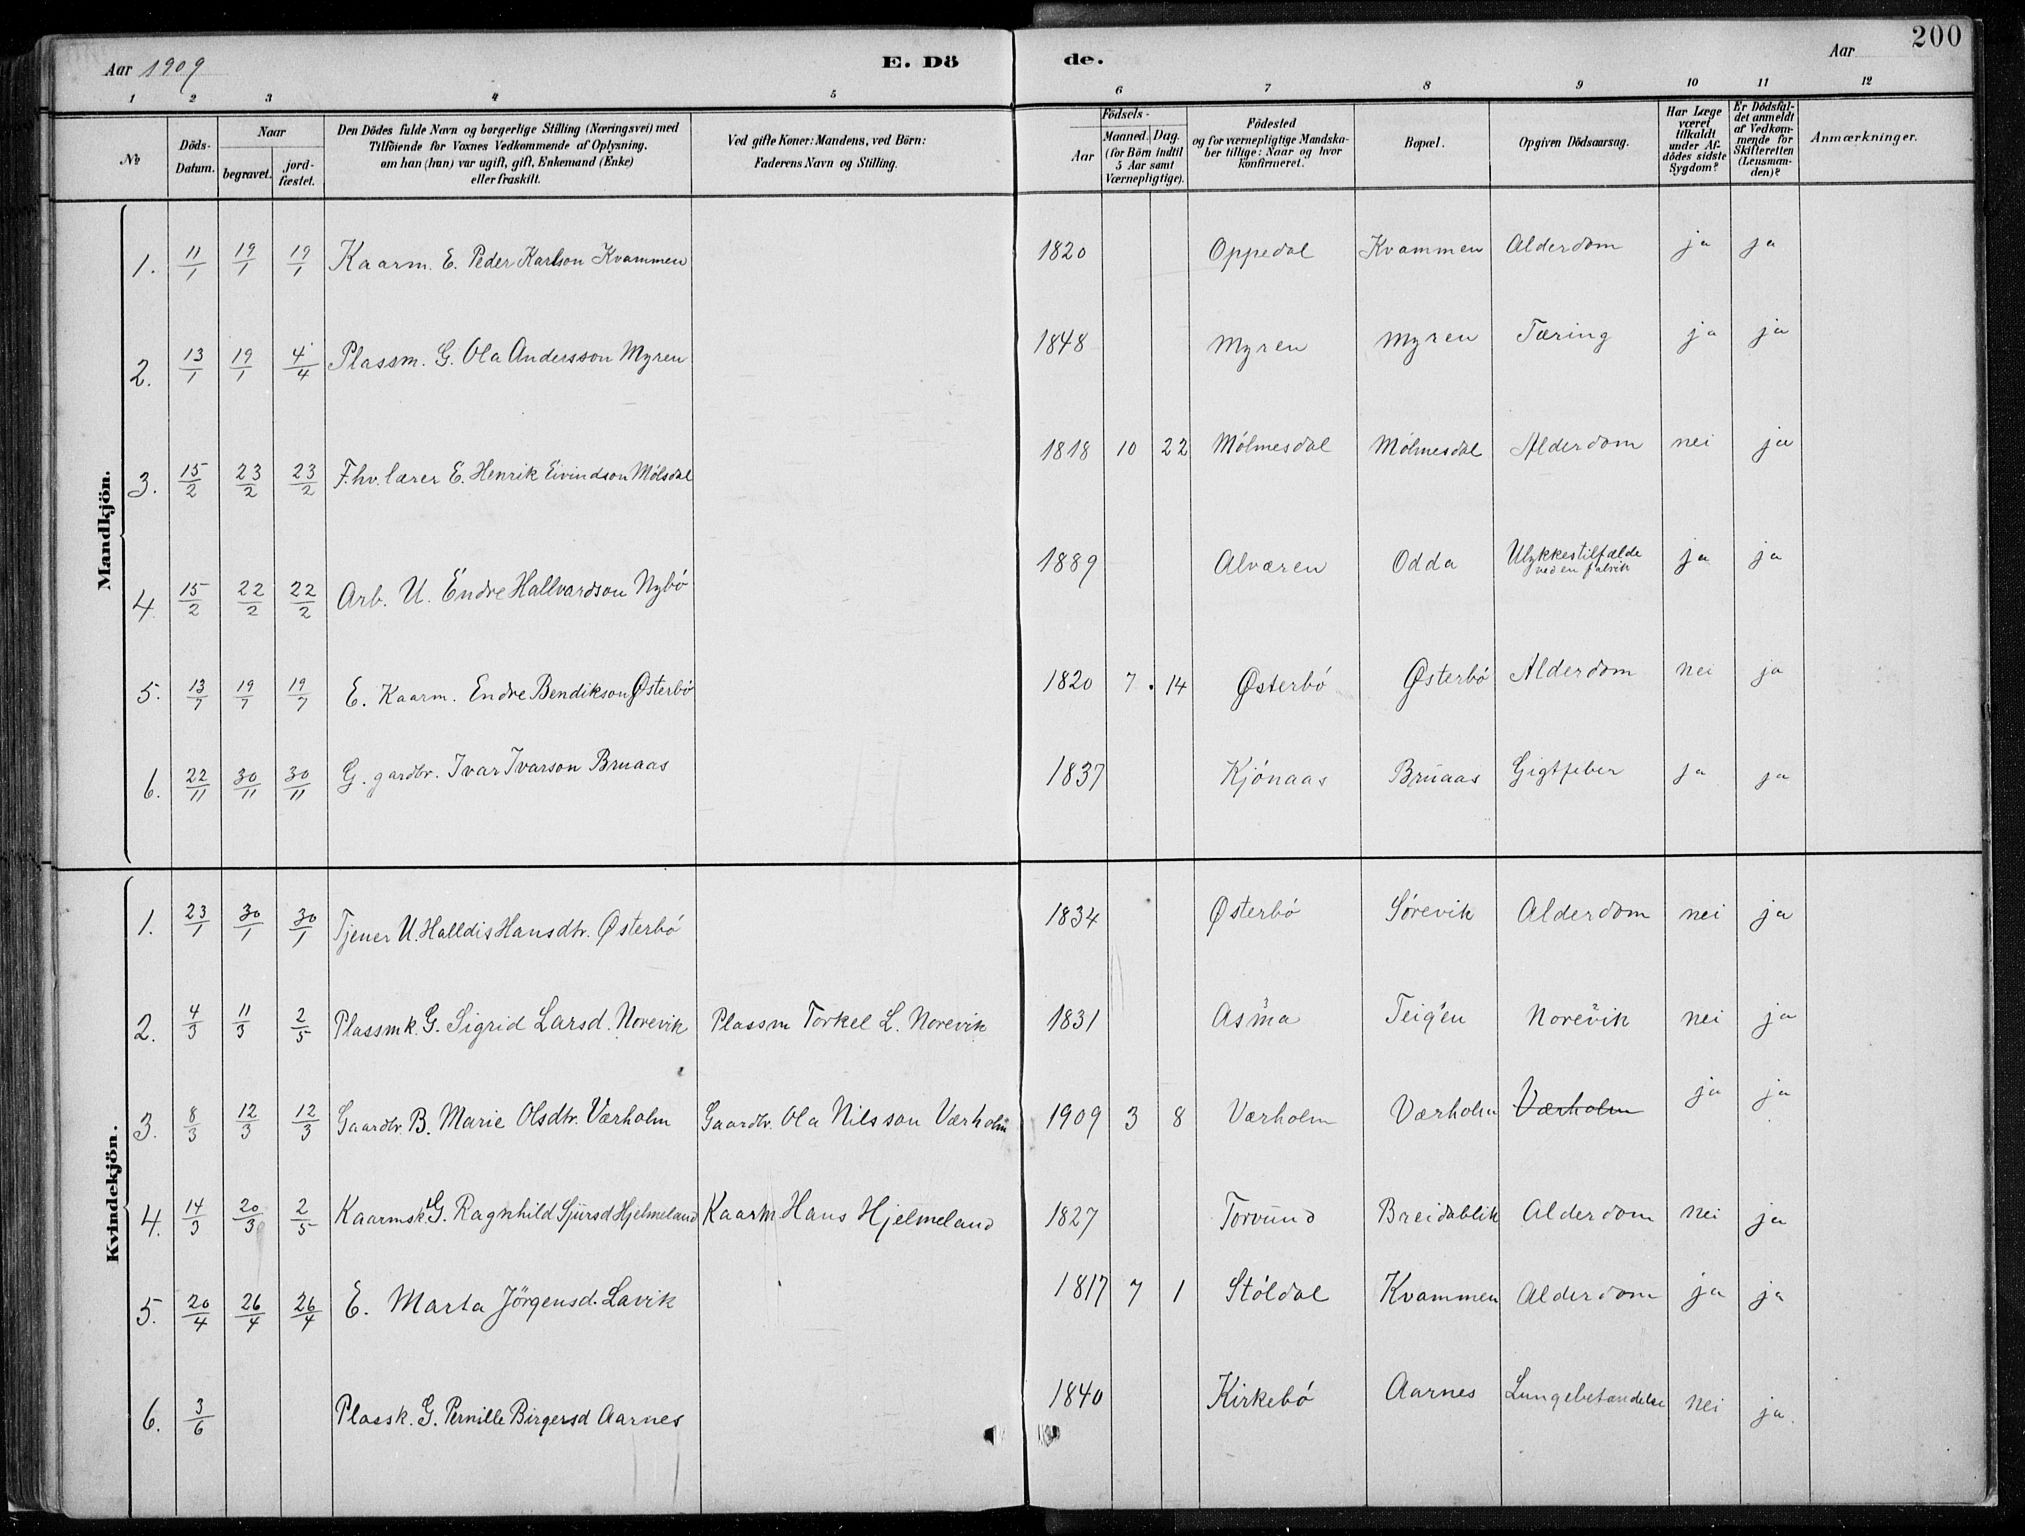 200
Aar 1909
E. Dö
de.
Aar
1 2 3 4 5 6 7 8 9 10 11 12
№
Döds-Datum.
Naar
begravet.
jord-fæstet.
Den Dödes fulde Navn og borgerlige Stilling (Næringsvei) med
Tilföiende for Voxnes Vedkommende af Oplysning,
om han (hun) var ugift, gift, Enkemand (Enke)
eller fraskilt.
Ved gifte Koner: Mandens, ved Börn:
Faderens Navn og Stilling.
Födsels-
Aar
Maaned. Dag.
(for Börn indtil
5 Aar samt
Værnepligtige).
Födested
og for værnepligtige Mandska-
ber tillige: Naar og hvor
konfirmeret.
Bopæl.
Opgiven Dödsaarsag.
Har Læge
været
tilkaldt
under Af-
dödes sidste
Sygdom?
Er Dödsfal-
det anmeldt
af Vedkom-
mende for
Skifteretten
(Lensman-
den)?
Anmærkninger.
Mandkjön.
1. 11/1 19/1 19/1 Kaarm. E. Peder Karlson Kvammen 1820 Oppedal Kvammen Alderdom ja ja
2. 13/1 19/1 4/4 Plassm. G. Ola Andersson Myren 1848 Myren Myren Tæring ja ja
3. 15/2 23/2 23/2 F.hv. lærer E. Henrik Eivindson Mölsdal 1818 10 22 Mólmesdal Mólmesdal Alderdom nei ja
4 15/2 22/2 22/2 Arb. U. Endre Hallvardson Nybó 1889 Alværen Odda Ulykkestilfælde ved en fabrik ja ja
5. 13/7 19/7 19/7 E. Kaarm. Endre Bendikson Østerbó 1820 7. 14 Østerbó Østerbó Alderdom nei ja
6. 22/11 30/11 30/11 G. gardbr. Ivar Ivarson Bruaas 1837 Kjónaas Bruaas Gigtfeber ja ja
Kvindekjön.
1. 23/1 30/1 30/1 Tjener U. Halldis Hansdtr. Østerbó 1834 Østerbó Sórevik Alderdom nei ja
2. 4/3 11/3 2/5 Plassmk. G. Sigrid Larsd. Norevik Plassm Torkel L. Norevik 1831 Asma Teigen Norevik nei ja
3. 8/3 12/3 12/3 Gaardbr. B. Marie Olsdtr. Værholm Gaardbr. Ola Nilsson Værholm 1909 3 8 Værholm Værholm Værholm ja ja
4. 14/3 20/3 2/5 Kaarmsk. G. Ragnhild Sjursd Hjelmeland Kaarm. Hans Hjelmeland 1827 Torvund Breidablik Alderdom nei ja
5. 20/4 26/4 26/4 E. Marta Jörgensd. Lavik 1817 7 1 Stóldal Kvammen Alderdom ja ja
6. 3/6 Plassk. G. Pernille Birgersd Aarnes 1840 Kirkebó Aarnes Lungebetændelse nei ja.